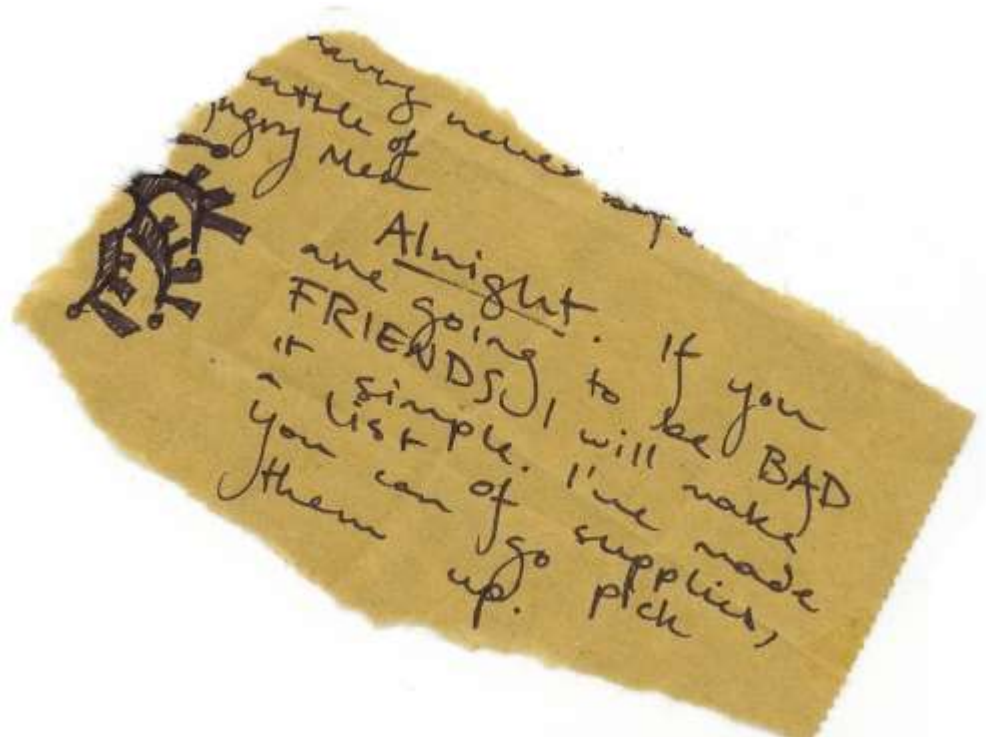 never
of
Men
Alright. If you
are going to be BAD
FRIENDS, I will make
it simple. I've made
a list of supplies,
you can go pick
them up.